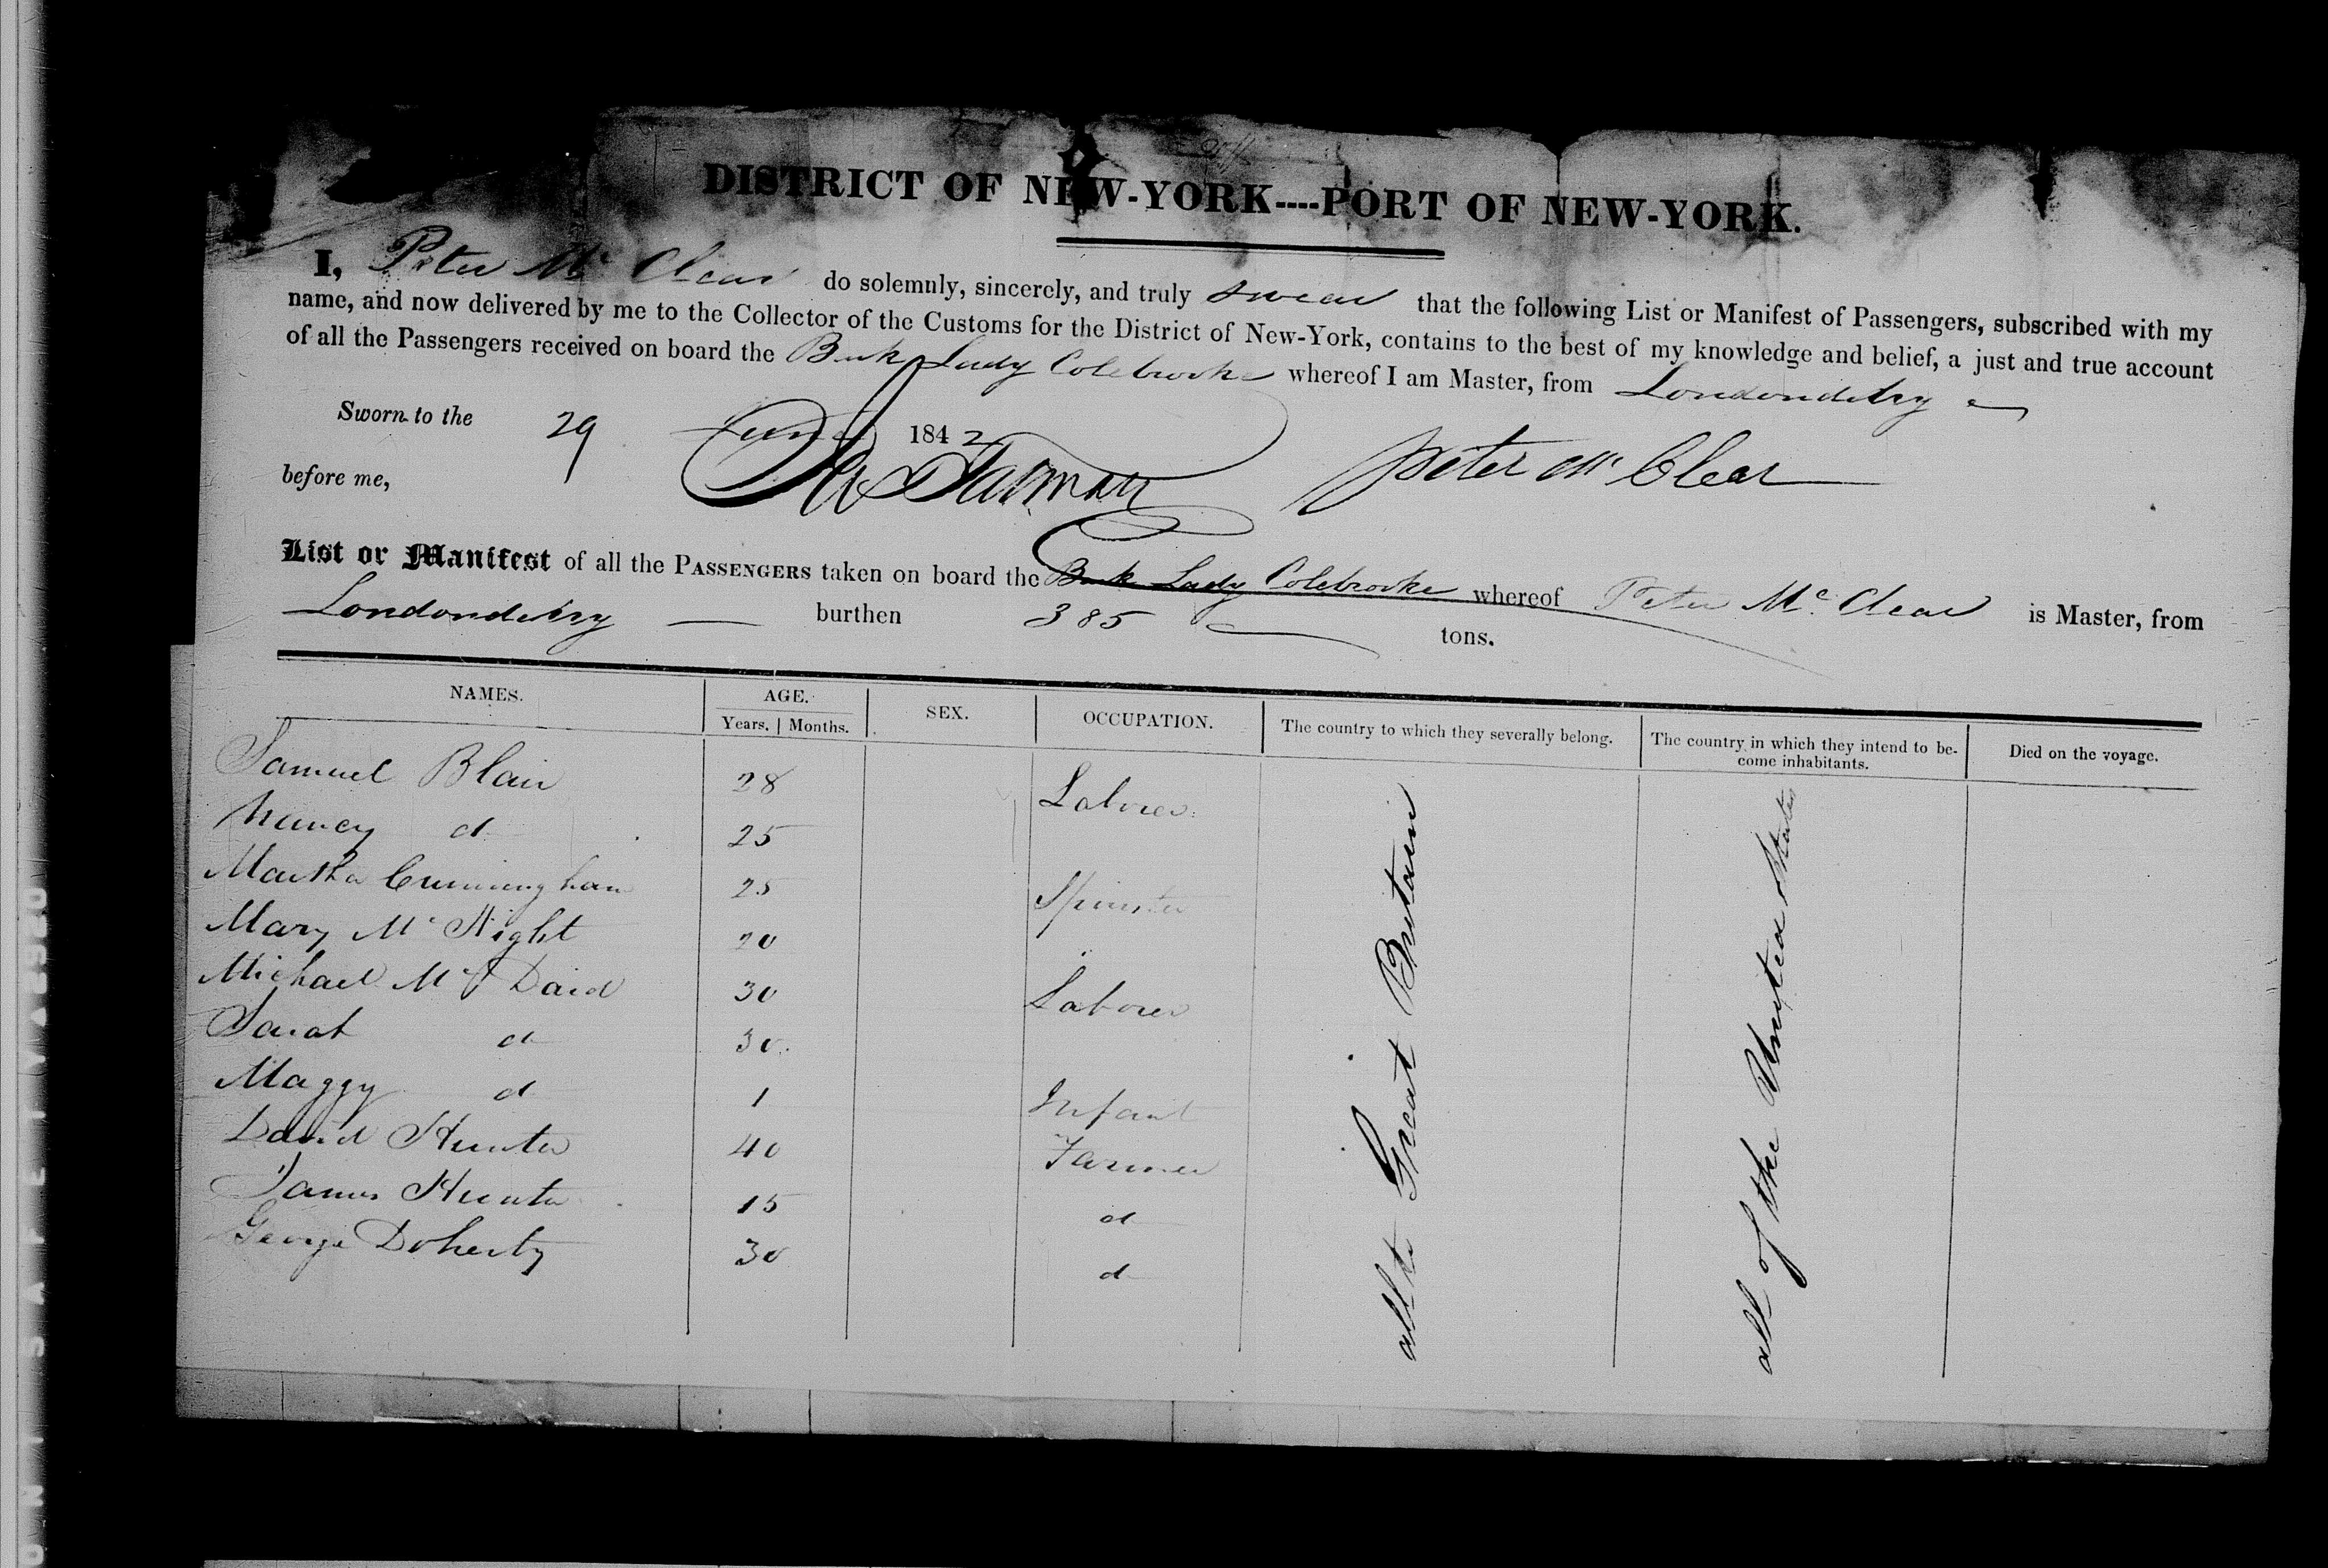 DISTRICT OF NEW-YORK----PORT OF NEW-YORK.
I, Peter Mc Clear do solemnly, sincerely, and truly swear that the following List or Manifest of Passengers, subscribed with my
name, and now delivered by me to the Collector of the Customs for the District of New-York, contains to the best of my knowledge and belief, a just and true account
of all the Passengers received on board the Bark Lady Colebrooke whereof I am Master, from Londonderry
Sworn to the 29 June 1842
Peter Mc Clear
before me,
List or Manifest of all the PASSENGERS taken on board the Bark Lady Colebrooke whereof Peter Mc Clear is Master, from
Londonderry burthen 385 tons.
NAMES. AGE. SEX. OCCUPATION. The country to which they severally belong. The country in which they intend to be-
come inhabitants. Died on the voyage.
Years. | Months.
Samuel Blair 28 Laborer
Nancy d 25
Martha Cunningham 25 Spinster
Mary Mc Night 20
Michael Mc Daid 30 Laborer
Sarah d 30
Maggy d 1 Infant
David Hunter 40 Farmer
James Hunter 15 d
George Doherty 30 d
all to Great Britain
all of the United States